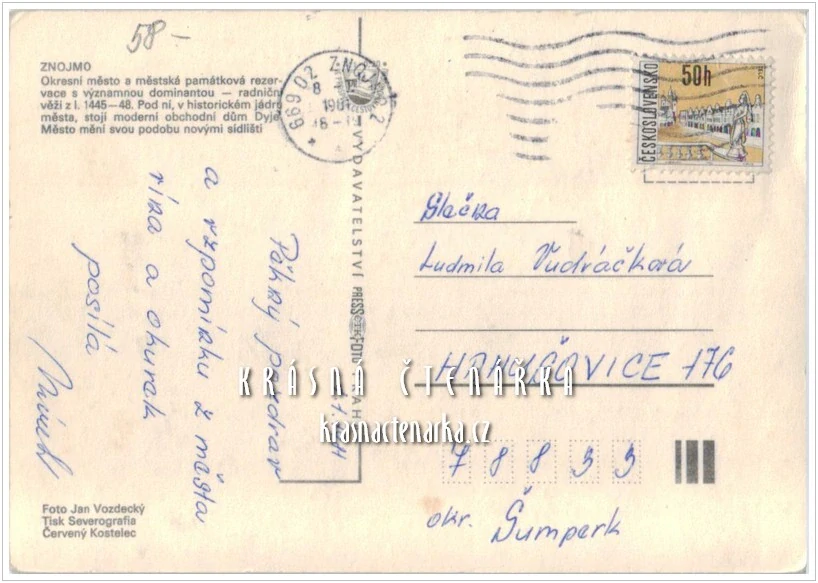 58-
ZNOJMO
Okresní město a městská památková rezer-
vace s významnou dominantou — radniční
věží z l. 1445—48. Pod ní, v historickém jádru
města, stojí moderní obchodní dům Dyje
Město mění svou podobu novými sídlišti
669 02 ZNOJMO 2
ČESKOSLOVENSKO
50h
VYDAVATELSTVÍ PRESSFOTO
Pěkný pozdrav
a vzpomínku z města
vína a okurek
posílá
Slečna
Ludmila Vudráčková
HANUŠOVICE 176
78833
okr. Šumperk
KRÁSNÁ ČTENÁŘKA
krasnactenarka.cz
Foto Jan Vozdecký
Tisk Severografia
Červený Kostelec